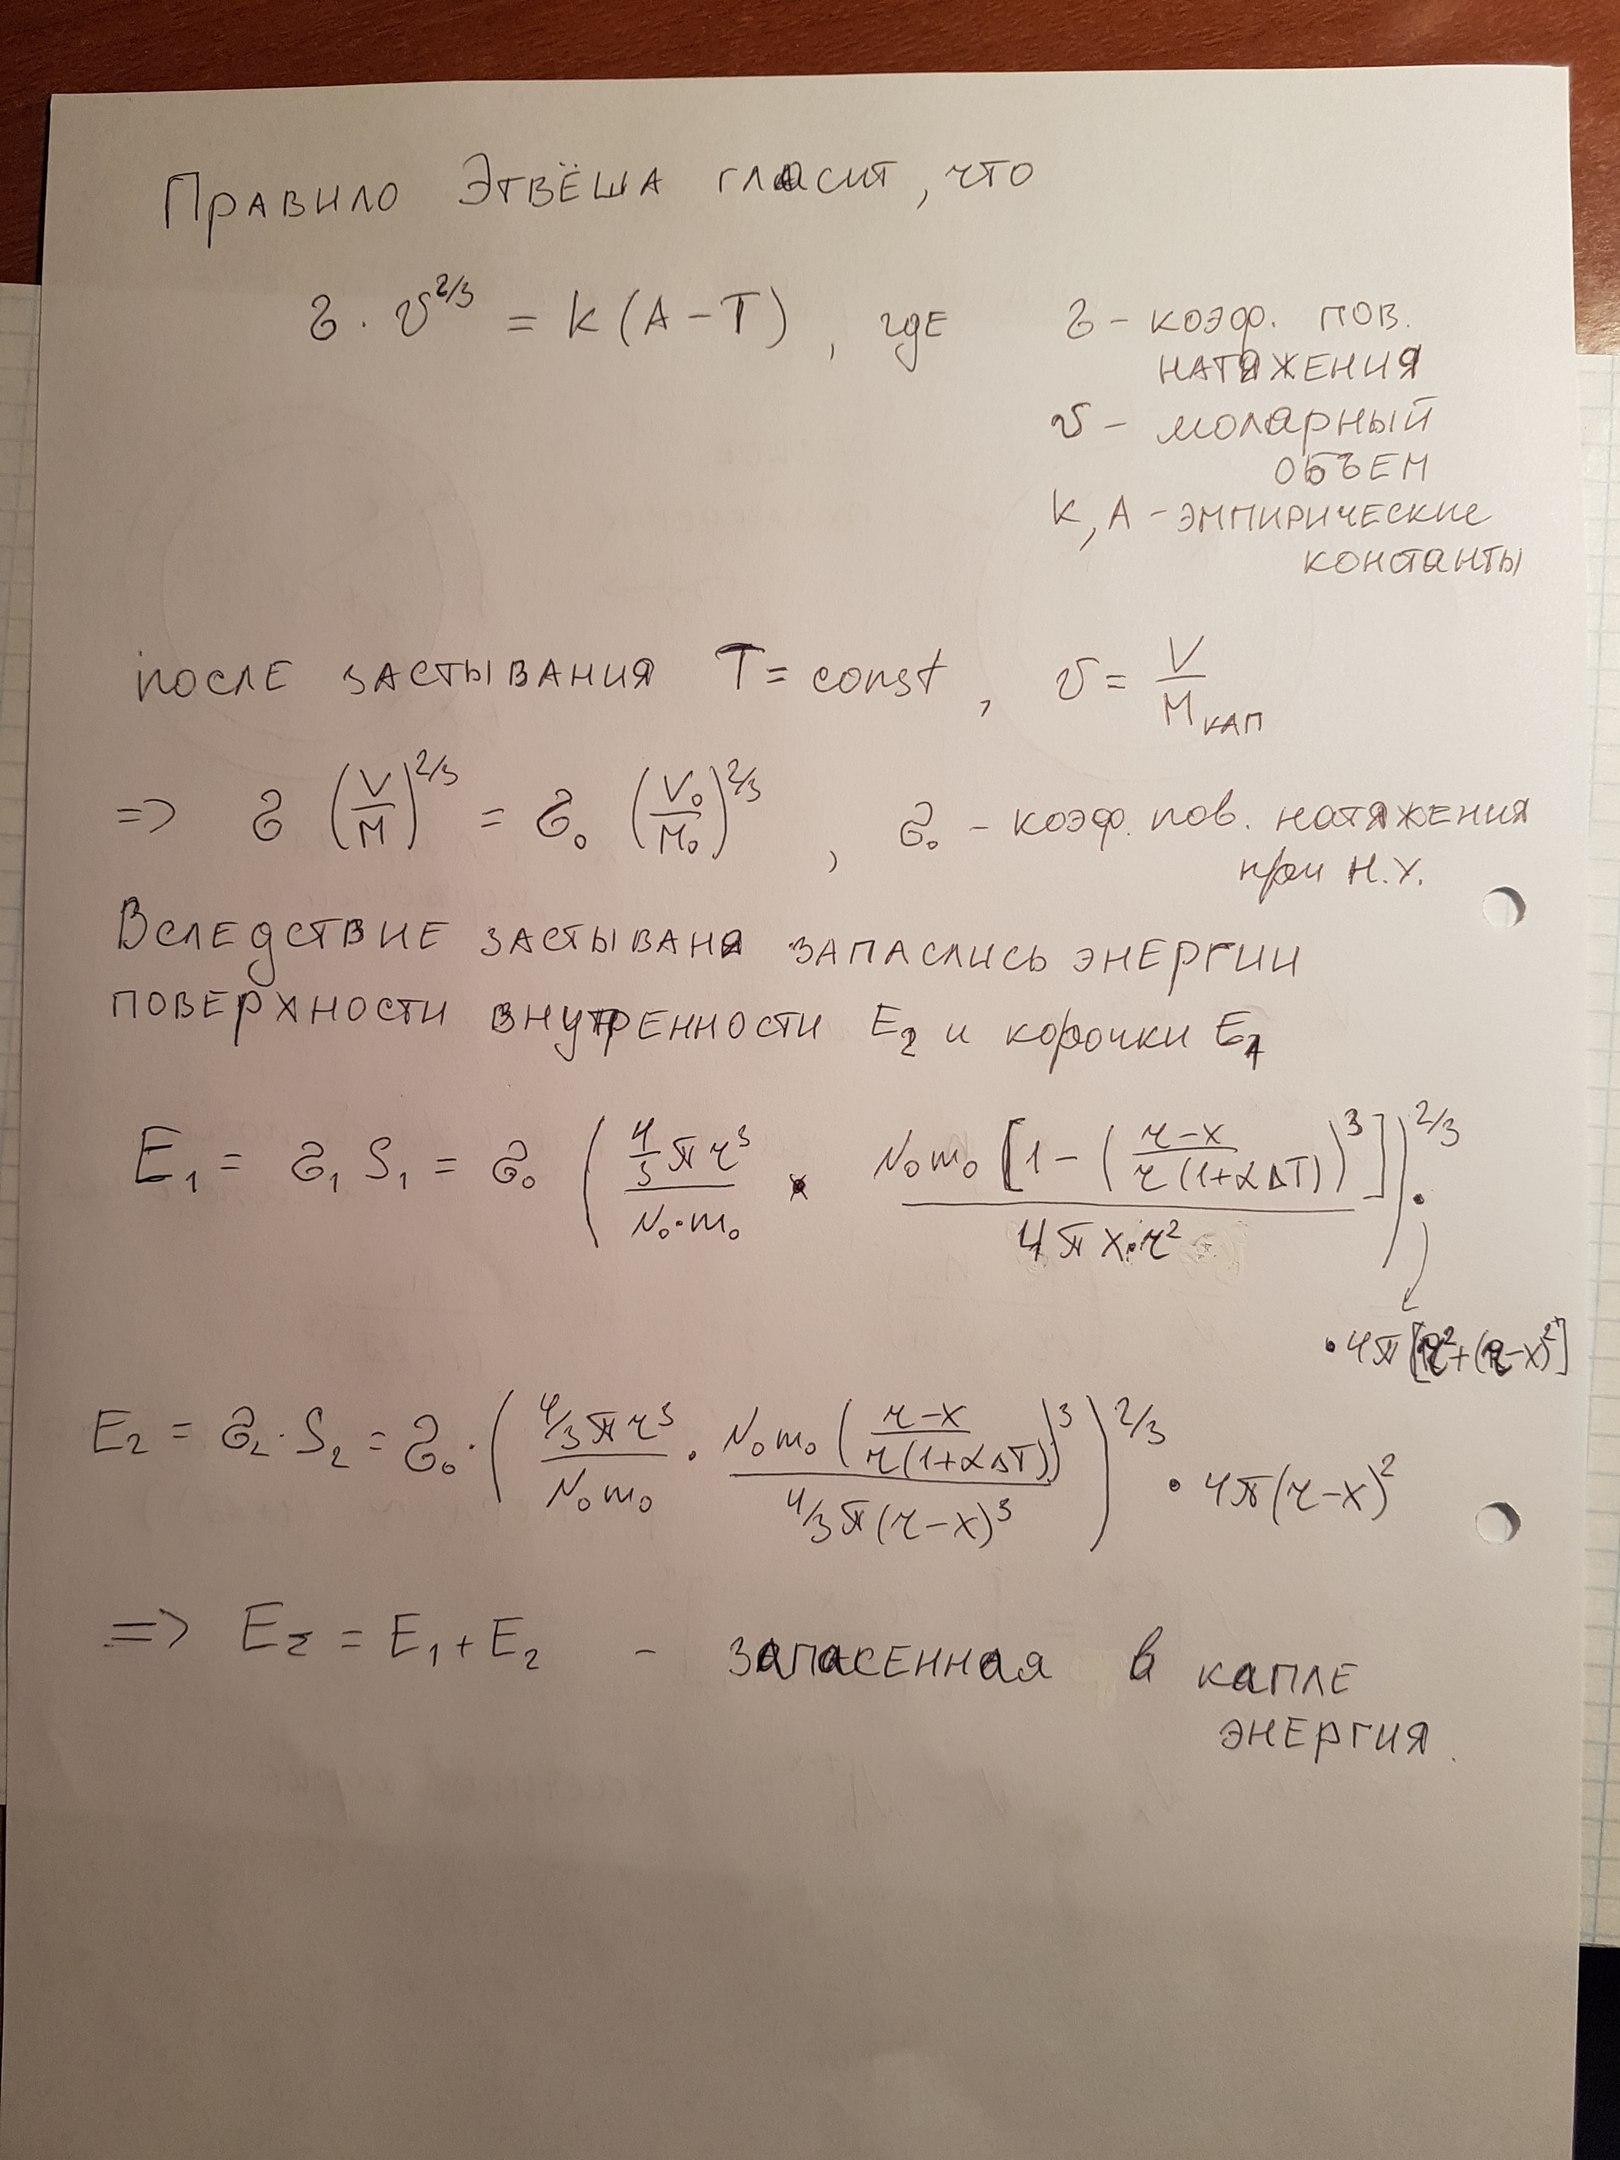 Правило Этвёша гласит, что
σ · v^2/3 = k (A – T), где
σ – коэф. пов.
натяжения
v – молярный
объем
k, A – эмпирические
константы
после застывания T = const, v = V / M кап
=> σ (V/M)^2/3 = σ₀ (V₀/M₀)^2/3, σ₀ – коэф. пов. натяжения
при н.у.
Вследствие застываня запаслись энергии
поверхности внутренности E₂ и корочки E₁
E₁ = σ₁ S₁ = σ₀ ( (4/3 π r³)/(N₀·m₀) × (N₀m₀ [1 – ((r–x)/(r(1+αΔT)))³])/(4πx·r²) )^2/3 ·
· 4π [r² + (r–x)²]
E₂ = σ₂ · S₂ = σ₀ · ( (4/3 π r³)/(N₀m₀) · (N₀m₀ ((r–x)/(r(1+αΔT)))³)/(4/3 π (r–x)³) )^2/3 · 4π(r–x)²
=> E_Σ = E₁ + E₂ – запасенная в капле
энергия.